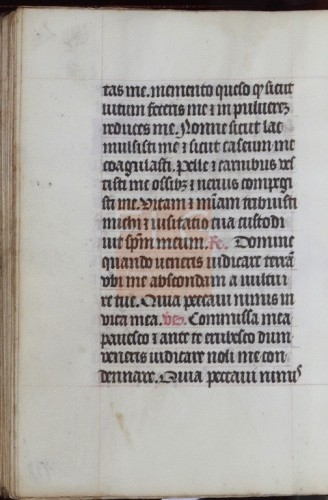 tas me. memento queso qꝫ sicut
lutum feceris me ⁊ in puluereꝫ
reduces me. Nonne sicut lac
mulsisti me ⁊ sicut caseum me
coagulasti. Pelle ⁊ carnibus ves
tisti me ossibꝫ ⁊ neruis compegi
sti me. Vitam ⁊ mi̅am tribuisti
michi ⁊ uisitacio tua custodi
uit sp̅m meum. R̅e. Domine
quando ueneris iudicare terra̅
vbi me abscondam a uultu i
re tue. Quia peccaui nimis in
vita mea. v̅e. Commissa mea
pauesco ⁊ ante te erubesco dum
veneris iudicare noli me con
dennare. Quia peccaui nimiˢ